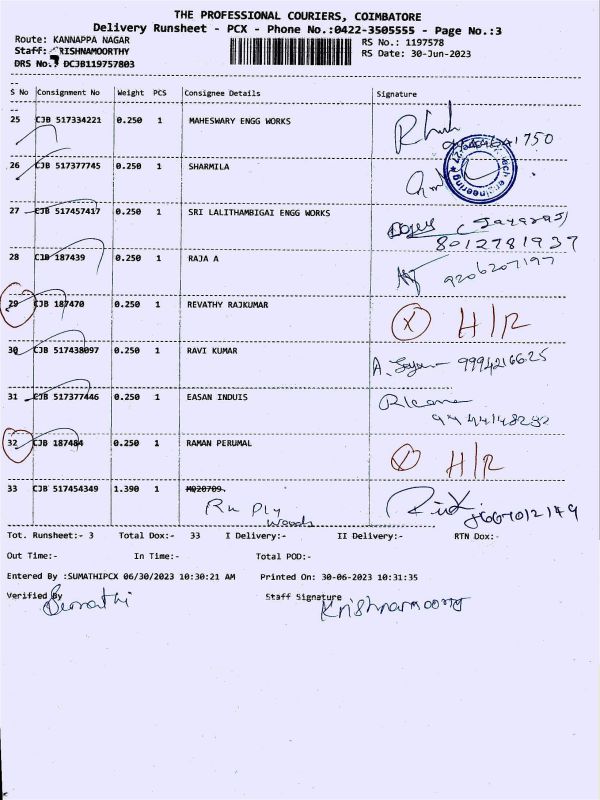 THE PROFESSIONAL COURIERS, COIMBATORE
Delivery Runsheet - PCX - Phone No.:0422-3505555 - Page No.:3
Route: KANNAPPA NAGAR RS No.: 1197578
Staff: KRISHNAMOORTHY RS Date: 30-Jun-2023
DRS No.: DCJB119757803
S No Consignment No Weight PCS Consignee Details Signature
25 CJB 517334221 0.250 1 MAHESWARY ENGG WORKS
26 CJB 517377745 0.250 1 SHARMILA
27 CJB 517457417 0.250 1 SRI LALITHAMBIGAI ENGG WORKS (Jayaraj)
8012781937
28 CJB 187439 0.250 1 RAJA A 9206207197
29 CJB 187470 0.250 1 REVATHY RAJKUMAR X H/R
30 CJB 517438097 0.250 1 RAVI KUMAR
31 CJB 517377446 0.250 1 EASAN INDUIS
32 CJB 187484 0.250 1 RAMAN PERUMAL X H/R
33 CJB 517454349 1.390 1 MQ20709.
Rn Ply
woods
Tot. Runsheet:- 3 Total Dox:- 33 I Delivery:- II Delivery:- RTN Dox:-
Out Time:- In Time:- Total POD:-
Entered By :SUMATHIPCX 06/30/2023 10:30:21 AM Printed On: 30-06-2023 10:31:35
Verified By Staff Signature
Sumathi Krishnamoorthy